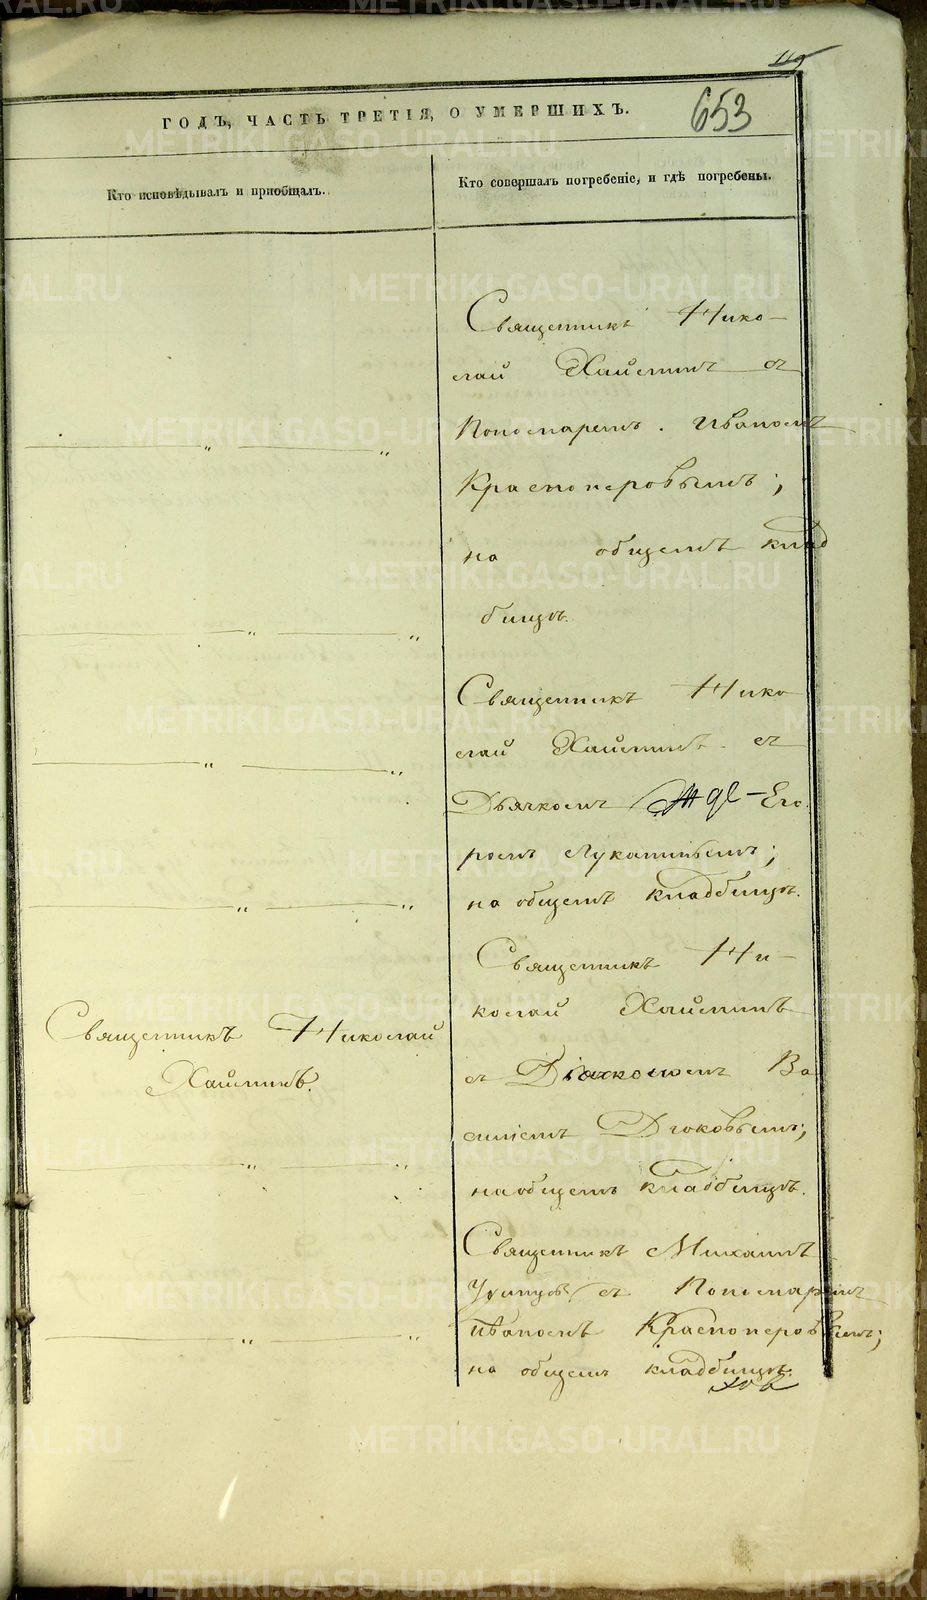 653
ГОДЪ, ЧАСТЬ ТРЕТІЯ, О УМЕРШИХЪ.
Кто исповѣдывалъ и пріобщалъ.
Кто совершалъ погребеніе, и гдѣ погребены.
Священникъ Нико-
лай Хайминъ съ
Пономаремъ Иваномъ
Красноперовымъ;
на общемъ клад
бищѣ.
Священникъ Нико
лай Хайминъ съ
Дьячкомъ Его
ромъ Лукинымъ;
на общемъ кладбищѣ.
Священникъ Ни-
колай Хайминъ
съ Ва
силіемъ Дюковымъ;
на общемъ кладбищѣ.
Священникъ Николай
Хайминъ.
Священникъ Михаилъ
съ Пономаремъ
Иваномъ Красноперовымъ;
на общемъ кладбищѣ.
METRIKI.GASO-URAL.RU